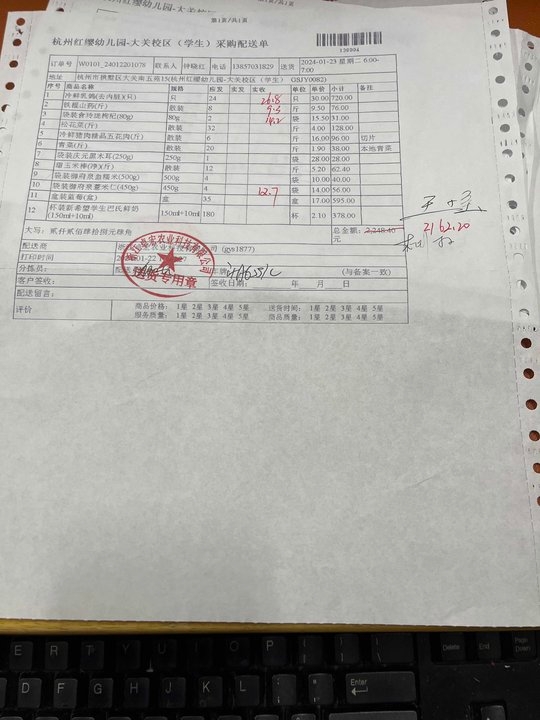 第1页/共1页
杭州红缨幼儿园-大关校区（学生）采购配送单
120904
订单号 W0101_24012201078 联系人 钟晓红 电话 13857031829 送货 2024-01-23 星期二 6:00-7:00
地址 杭州市拱墅区大关南五苑15(杭州红缨幼儿园-大关校区（学生） GSJY0082)
序号 商品名称 规格 应发 实发 实收 单位 单价 小计 备注
1 冷鲜乳鸽(去内脏)(只) 只 24 只 30.00 720.00
2 铁棍山药(斤) 散装 8 斤 9.50 76.00
3 袋装食玲珑枸杞(80g) 80g 2 袋 15.50 31.00
4 松花菜(斤) 散装 32 斤 4.00 128.00
5 冷鲜猪肉精品五花肉(斤) 散装 6 斤 16.00 96.00 切片
6 青菜(斤) 散装 20 斤 1.90 38.00 本地青菜
7 袋装庆元黑木耳(250g) 250g 1 袋 28.00 28.00
8 甜玉米棒(净)(斤) 散装 12 斤 5.20 62.40
9 袋装御府泉血糯米(500g) 500g 4 袋 10.00 40.00
10 袋装御府泉薏米仁(450g) 450g 4 袋 14.00 56.00
11 盒装蓝莓(盒) 盒 35 12.7 盒 17.00 595.00
12 杯装新希望学生巴氏鲜奶(150ml*10ml) 150ml*10ml 180 杯 2.10 378.00
大写：贰仟贰佰肆拾捌元肆角 总金额：2,248.40元
2162.20
配送商 (gys1877)
打印时间
送货专用章
分拣员： (与备案一致)
客户签收： 签收日期： 年 月 日
配送留言：
评价 商品价格： 1星 2星 3星 4星 5星 送货时间： 1星 2星 3星 4星 5星
服务质量： 1星 2星 3星 4星 5星 商品质量： 1星 2星 3星 4星 5星
E R T Y U I O P
D F G H J K L
Enter
Delete End Page Down